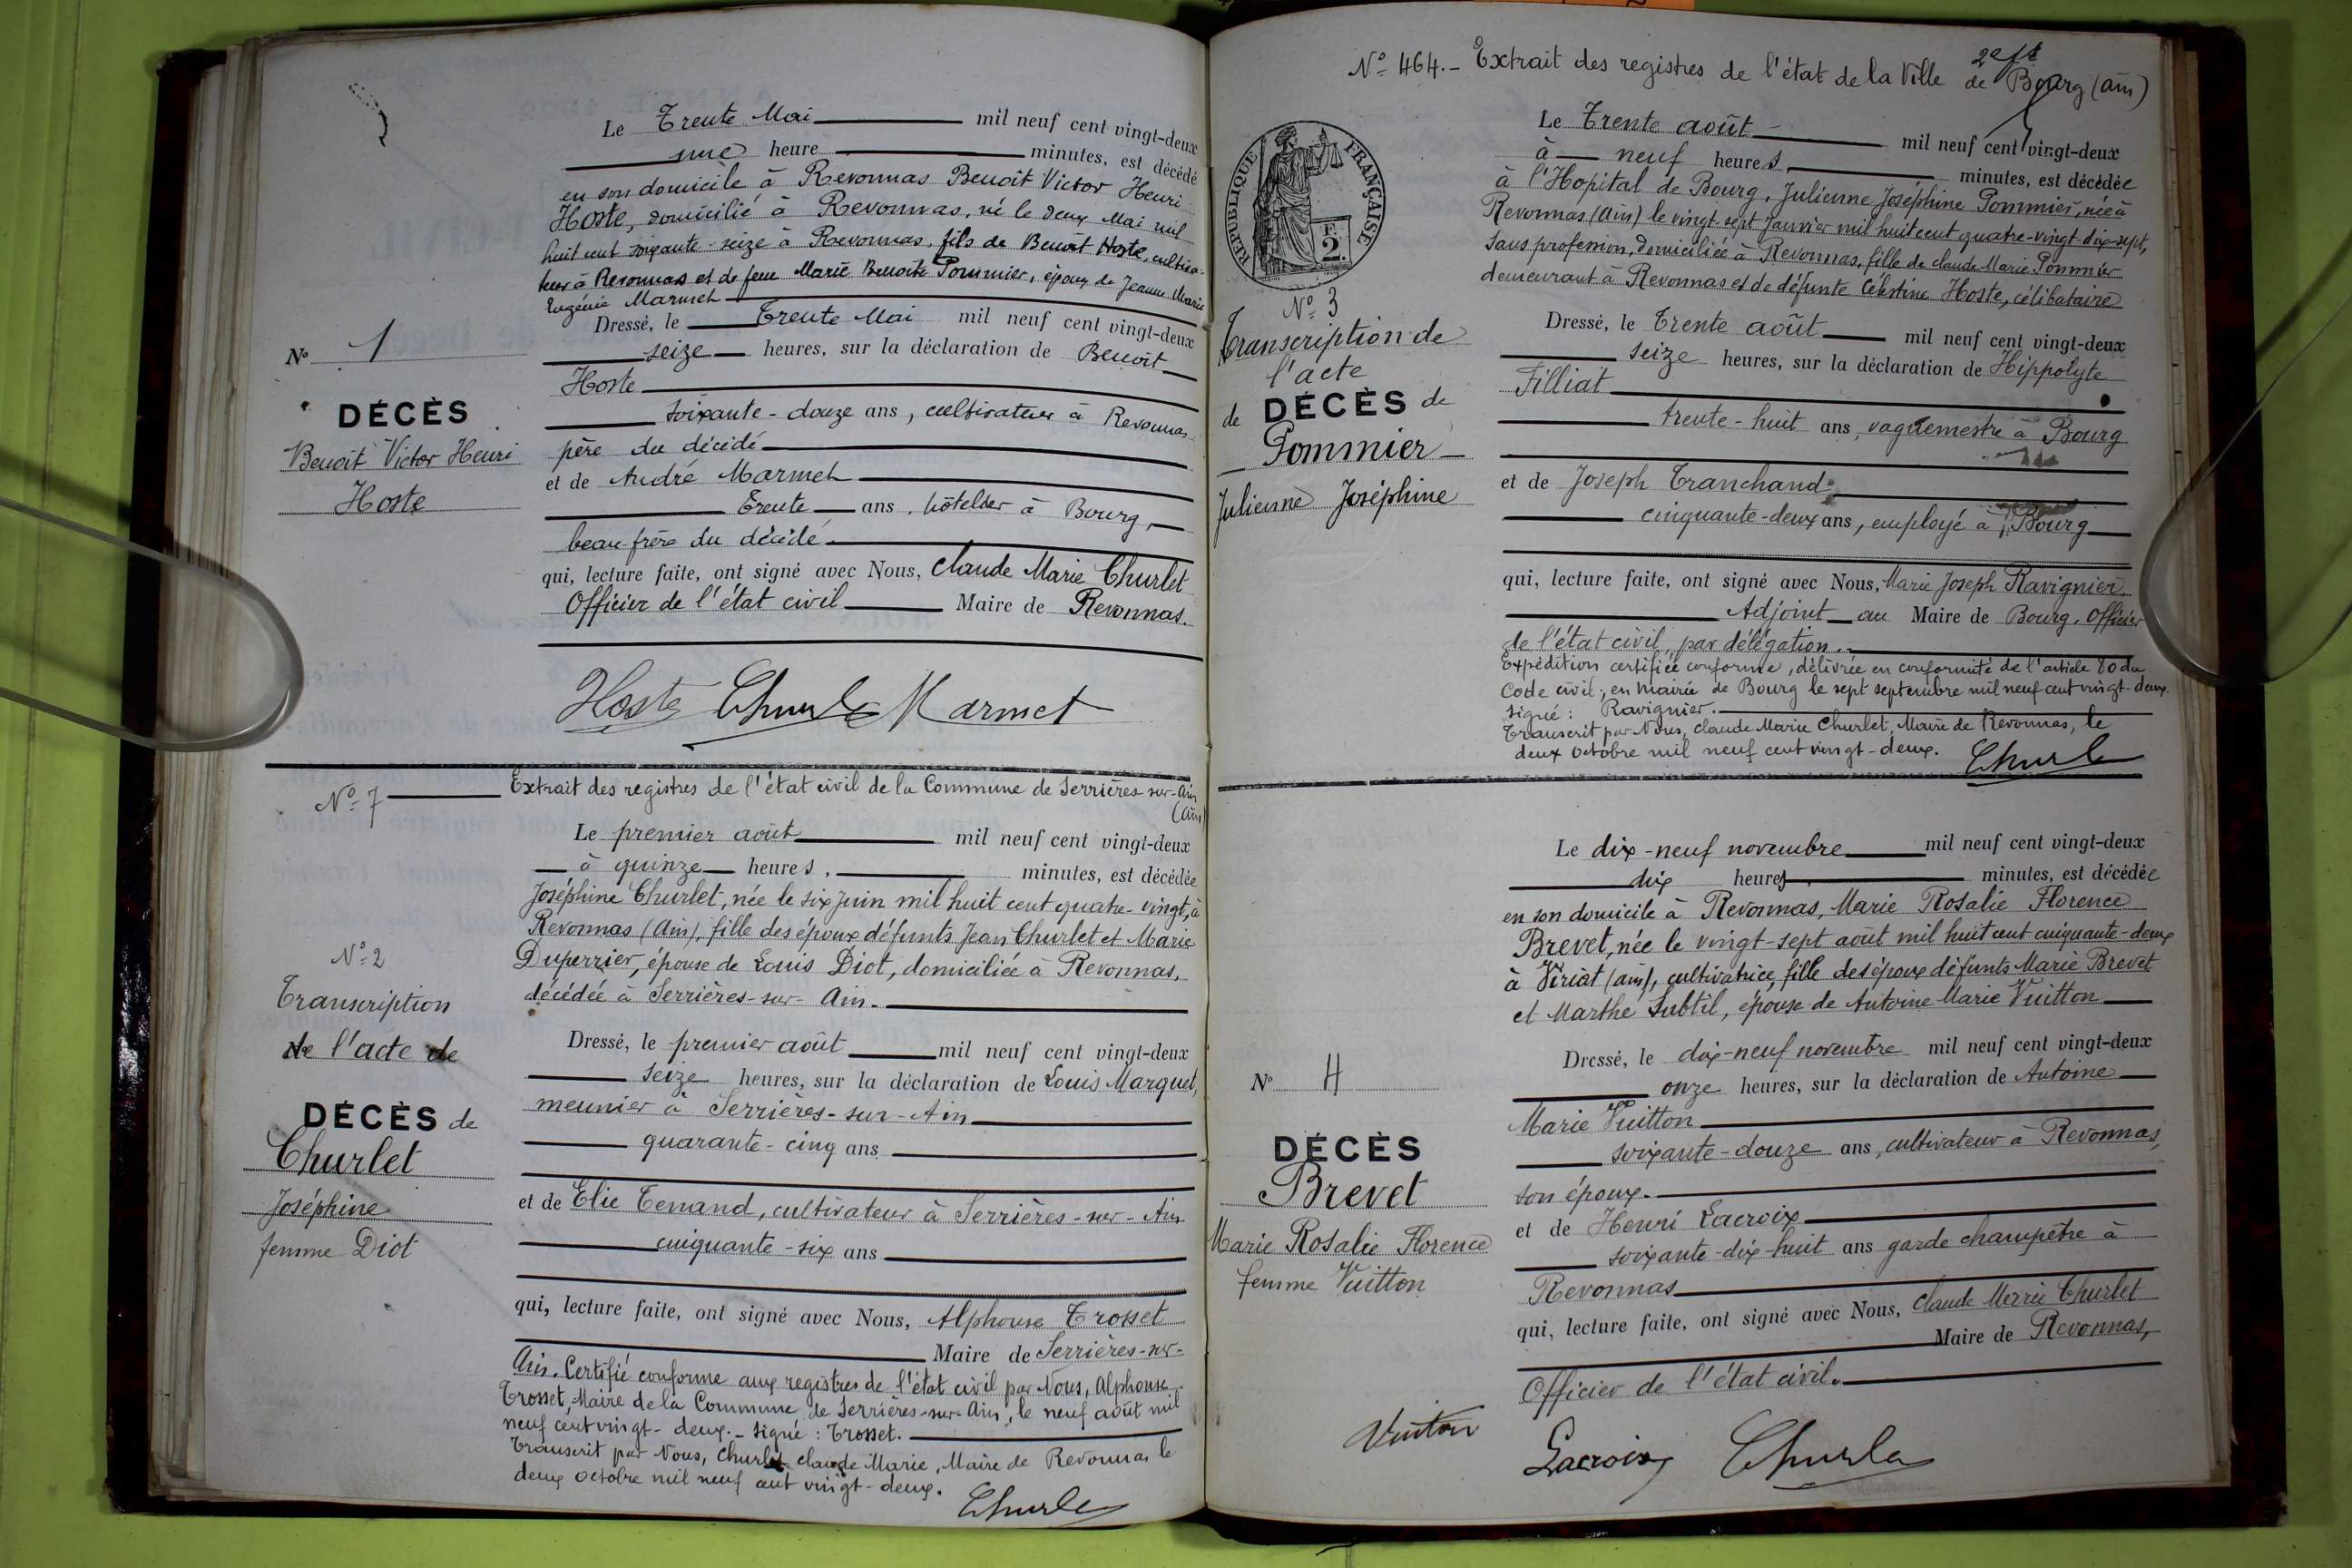 Le Trente Mai mil neuf cent vingt-deux
une heure minutes, est décédé
en son domicile à Revonnas Benoît Victor Henri
Hoste, domicilié à Revonnas, né le deux Mai mil
huit cent soixante-seize à Revonnas, fils de Benoît Hoste, cultiva-
teur à Revonnas et de feue Marie Benoîte Pommier, époux de Jeanne Marie
Eugénie Marmet
Dressé, le Trente Mai mil neuf cent vingt-deux
seize heures, sur la déclaration de Benoît
Hoste
soixante-douze ans, cultivateur à Revonnas
père du décédé
et de André Marmet
Trente ans, hôtelier à Bourg,
beau-frère du décédé
qui, lecture faite, ont signé avec Nous, Claude Marie Churlet
Officier de l'état civil Maire de Revonnas.
Hoste Churlet Marmet
No 1
DÉCÈS
Benoît Victor Henri
Hoste
No 7 Extrait des registres de l'état civil de la Commune de Serrières-sur-Ain
(Ain)
Le premier août mil neuf cent vingt-deux
à quinze heures, minutes, est décédée
Joséphine Churlet, née le six Juin mil huit cent quatre-vingt, à
Revonnas (Ain), fille des époux défunts Jean Churlet et Marie
Duperrier, épouse de Louis Diot, domiciliée à Revonnas,
décédée à Serrières-sur-Ain.
Dressé, le premier août mil neuf cent vingt-deux
seize heures, sur la déclaration de Louis Marquet,
meunier à Serrières-sur-Ain
quarante-cinq ans
et de Elie Tenand, cultivateur à Serrières-sur-Ain
cinquante-six ans
qui, lecture faite, ont signé avec Nous, Alphonse Trosset
Maire de Serrières-sur-
Ain. Certifié conforme aux registres de l'état civil par Nous, Alphonse
Trosset, Maire de la Commune de Serrières-sur-Ain, le neuf août mil
neuf cent vingt-deux. - Signé : Trosset.
Transcrit par Nous, Churlet Claude Marie, Maire de Revonnas le
deux octobre mil neuf cent vingt-deux.
Churlet
No 2
Transcription
de l'acte de
DÉCÈS de
Churlet
Joséphine
femme Diot
No 464. - Extrait des registres de l'état de la Ville de Bourg (Ain)
Le Trente août mil neuf cent vingt-deux
à neuf heures, minutes, est décédée
à l'Hopital de Bourg, Julienne Joséphine Pommier, née à
Revonnas (Ain) le vingt-sept Janvier mil huit cent quatre-vingt dix-sept,
sans profession, domiciliée à Revonnas, fille de Claude Marie Pommier
demeurant à Revonnas et de défunte Célestine Hoste, célibataire
Dressé, le Trente août mil neuf cent vingt-deux
seize heures, sur la déclaration de Hippolyte
Filliat
trente-huit ans, vaguemestre à Bourg
et de Joseph Tranchand
cinquante-deux ans, employé à Bourg
qui, lecture faite, ont signé avec Nous, Marie Joseph Ravignier
Adjoint au Maire de Bourg, Officier
de l'état civil, par délégation.
Expédition certifiée conforme, délivrée en conformité de l'article 80 du
Code civil, en mairie de Bourg le sept septembre mil neuf cent vingt-deux.
Signé : Ravignier.
Transcrit par Nous, Claude Marie Churlet, Maire de Revonnas, le
deux octobre mil neuf cent vingt-deux.
Churlet
REPUBLIQUE FRANÇAISE
F.
2.
No 3
Transcription de
l'acte
de DÉCÈS de
Pommier
Julienne Joséphine
Le dix-neuf novembre mil neuf cent vingt-deux
dix heures, minutes, est décédée
en son domicile à Revonnas, Marie Rosalie Florence
Brevet, née le vingt-sept août mil huit cent cinquante-deux
à Viriat (Ain), cultivatrice, fille des époux défunts Marie Brevet
et Marthe Subtil, épouse de Antoine Marie Vuitton
Dressé, le dix-neuf novembre mil neuf cent vingt-deux
onze heures, sur la déclaration de Antoine
Marie Vuitton
soixante-douze ans, cultivateur à Revonnas,
son époux.
et de Henri Lacroix
soixante-dix-huit ans garde champêtre à
Revonnas
qui, lecture faite, ont signé avec Nous, Claude Marie Churlet
Maire de Revonnas,
Officier de l'état civil.
Vuitton
Lacroix Churlet
No 4
DÉCÈS
Brevet
Marie Rosalie Florence
femme Vuitton